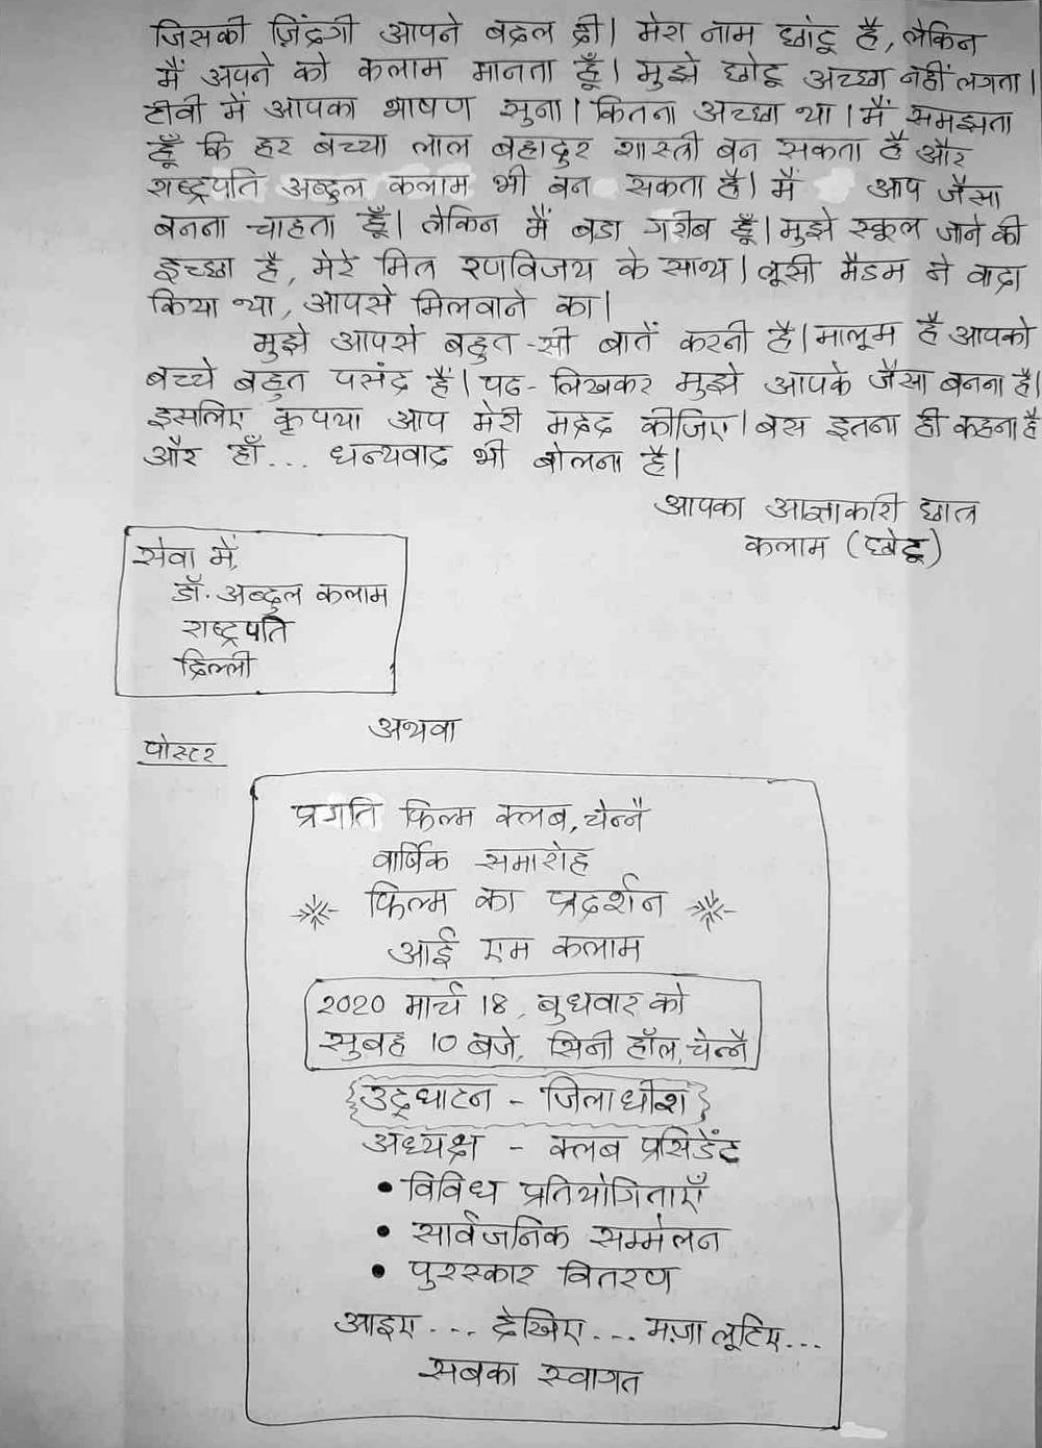 जिसकी ज़िंदगी आपने बदल दी। मेरा नाम छोटू है, लेकिन
मैं अपने को कलाम मानता हूँ। मुझे छोटू अच्छा नहीं लगता।
टीवी में आपका भाषण सुना। कितना अच्छा था। मैं समझता
हूँ कि हर बच्चा लाल बहादुर शास्त्री बन सकता है और
राष्ट्रपति अब्दुल कलाम भी बन सकता है। मैं आप जैसा
बनना चाहता हूँ। लेकिन मैं बडा गरीब हूँ। मुझे स्कूल जाने की
इच्छा है, मेरे मित्र रणविजय के साथ। लूसी मैडम ने वादा
किया था, आपसे मिलवाने का।
मुझे आपसे बहुत-सी बातें करनी है। मालूम है आपको
बच्चे बहुत पसंद हैं। पढ-लिखकर मुझे आपके जैसा बनना है।
इसलिए कृपया आप मेरी मदद कीजिए। बस इतना ही कहना है
और हाँ... धन्यवाद भी बोलना है।
आपका आज्ञाकारी छात्र
कलाम (छोटू)
सेवा में,
डॉ. अब्दुल कलाम
राष्ट्रपति
दिल्ली
अथवा
पोस्टर
प्रगति फिल्म क्लब, चेन्नै
वार्षिक समारोह
फिल्म का प्रदर्शन
आई एम कलाम
2020 मार्च 18, बुधवार को
सुबह 10 बजे, सिनी हॉल, चेन्नै
उद्घाटन - जिलाधीश
अध्यक्ष - क्लब प्रसिडेंट
• विविध प्रतियोगिताएँ
• सार्वजनिक सम्मेलन
• पुरस्कार वितरण
आइए... देखिए... मज़ा लूटिए...
सबका स्वागत